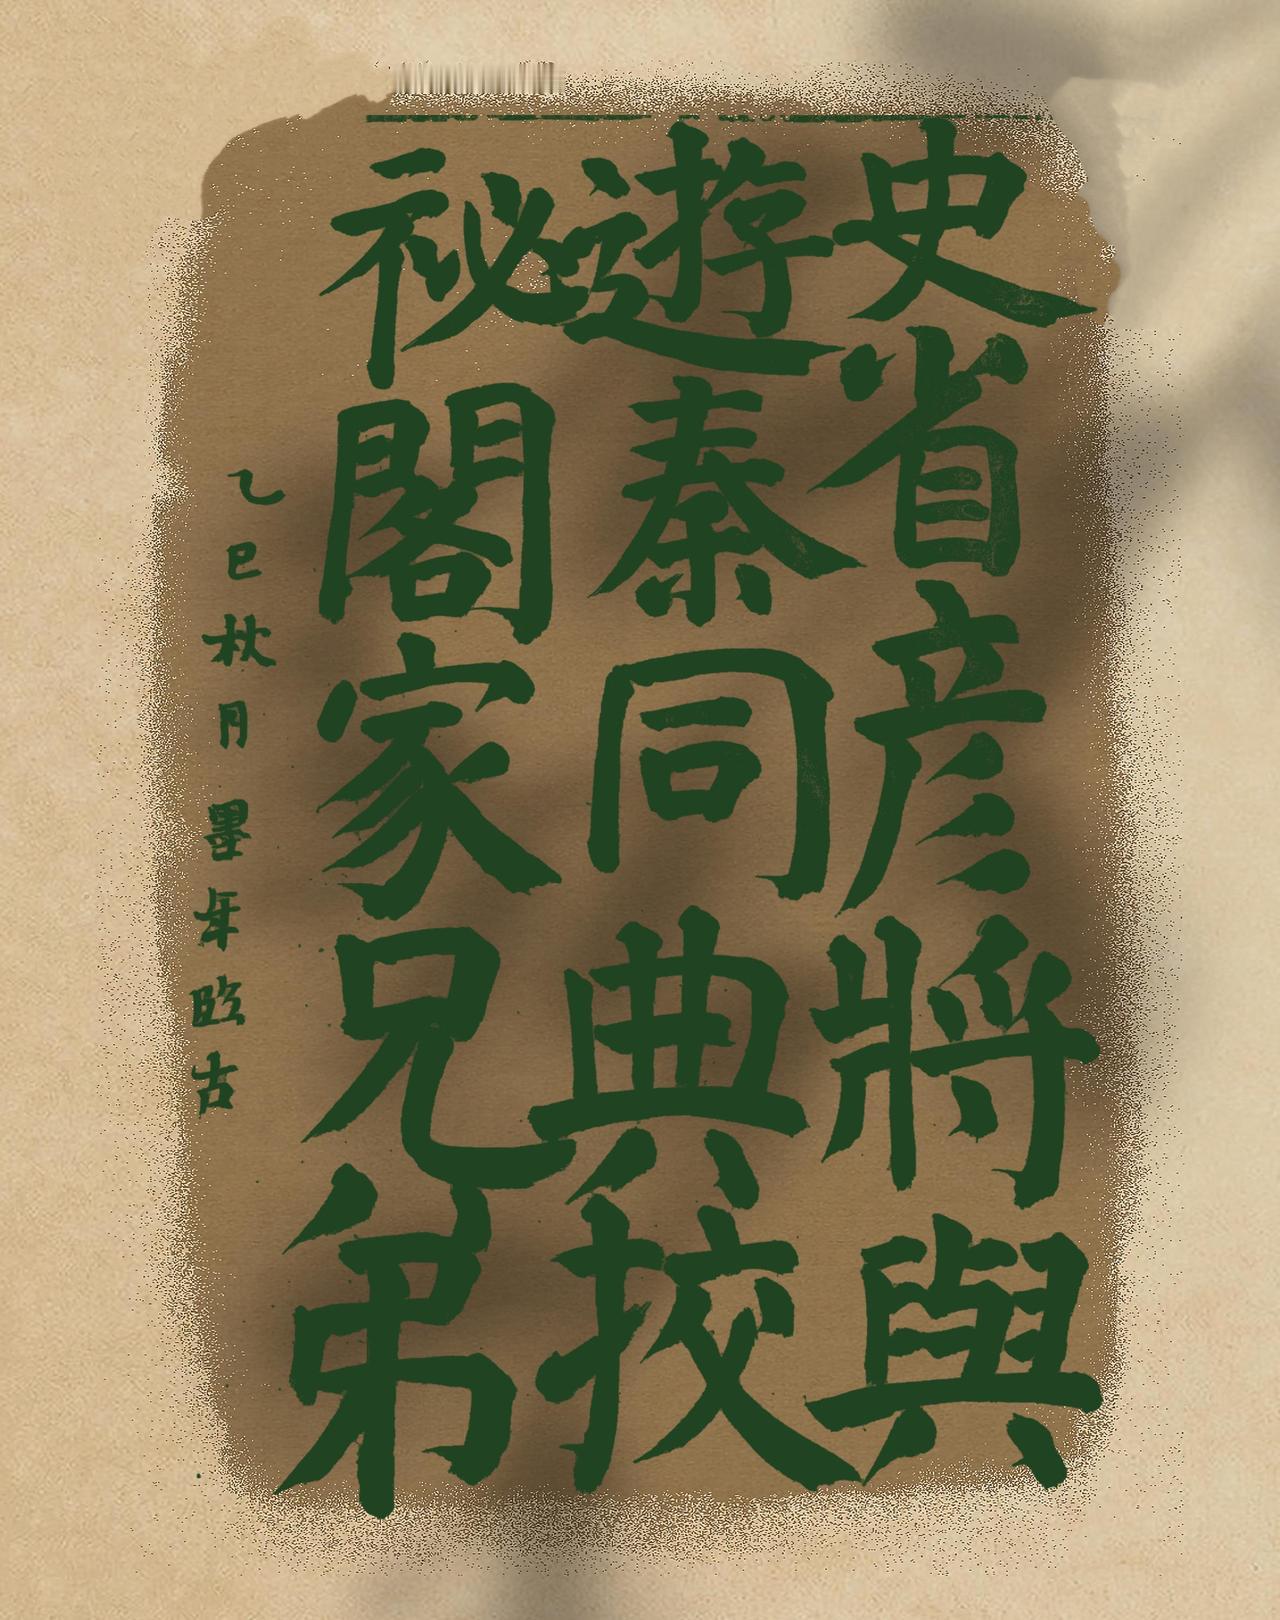 史省彦將與
遊秦同典挍
祕閣家兄弟
乙巳秋月墨年臨古